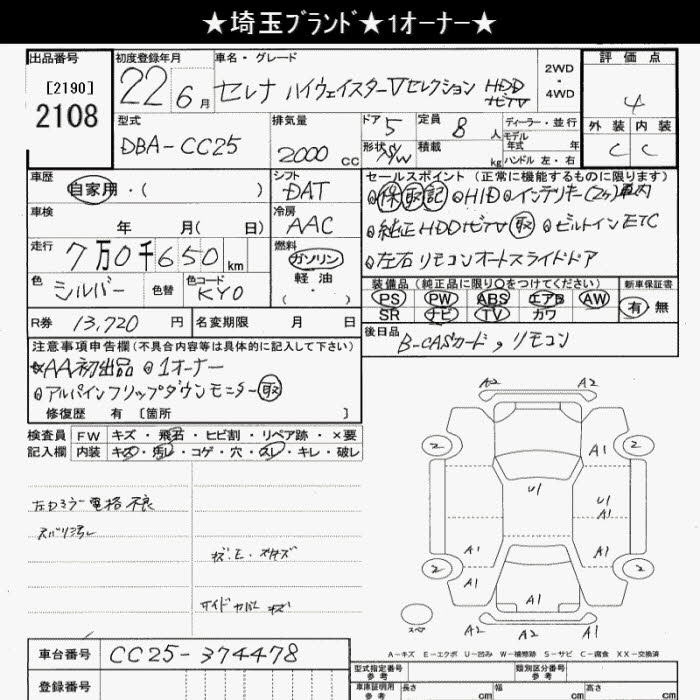 ★埼玉ﾌﾞﾗﾝﾄﾞ★1オーナー★
出品番号 初度登録年月 車名・グレード 2WD・4WD 評価点
[2190]
2108
22年6月 セレナ ハイウェイスターVセレクション HDD ﾅﾋﾞTV
4
型式 排気量 ドア 5 定員 8人 ディーラー・並行
DBA-CC25 2000cc 形状 S/W 積載 kg モデル年式 年 ハンドル 左・右
外装 内装
C C
車歴 シフト セールスポイント (正常に機能するものに限ります)
自家用・( ) DAT
保 取 記 HID インテリキー(2ヶ)車内
車検 冷房
年 月( 日) AAC
純正HDDﾅﾋﾞTV 取 ビルトインETC
走行 燃料
7万0千650km ガソリン
軽油
・
左右リモコンオートスライドドア
色 色替 色コード
シルバー KY0
装備品 (純正品に限り○をつけてください) 新車保証書
PS PW ABS エアB AW 有 無
SR ナビ TV カワ
R券 13,720円 名変期限 月 日
後日品 B-CASカード, リモコン
注意事項申告欄 (不具合内容等は具体的に記入して下さい)
AA初出品 1オーナー
アルパインフリップダウンモニター 取
修復歴 有 [箇所 ]
検査員 FW キズ・飛石・ヒビ割・リペア跡・×要
記入欄 内装 キズ・汚レ・コゲ・穴・スレ・キレ・破レ
左ドミラー電格不良
スバリ汚レ
A2 A2
2 2
A1
U1
U1
A1
A1 A1
2 2
A1 A1
A1
スペア
A2 A2 A1
A-キズ E-エクボ U-凹み W-補修跡 S-サビ C-腐食 XX-交換済
車台番号 CC25-374478
登録番号
型式指定番号 参考 類別区分番号 参考
車庫証明用 参考 長さ cm 幅 cm 高さ cm